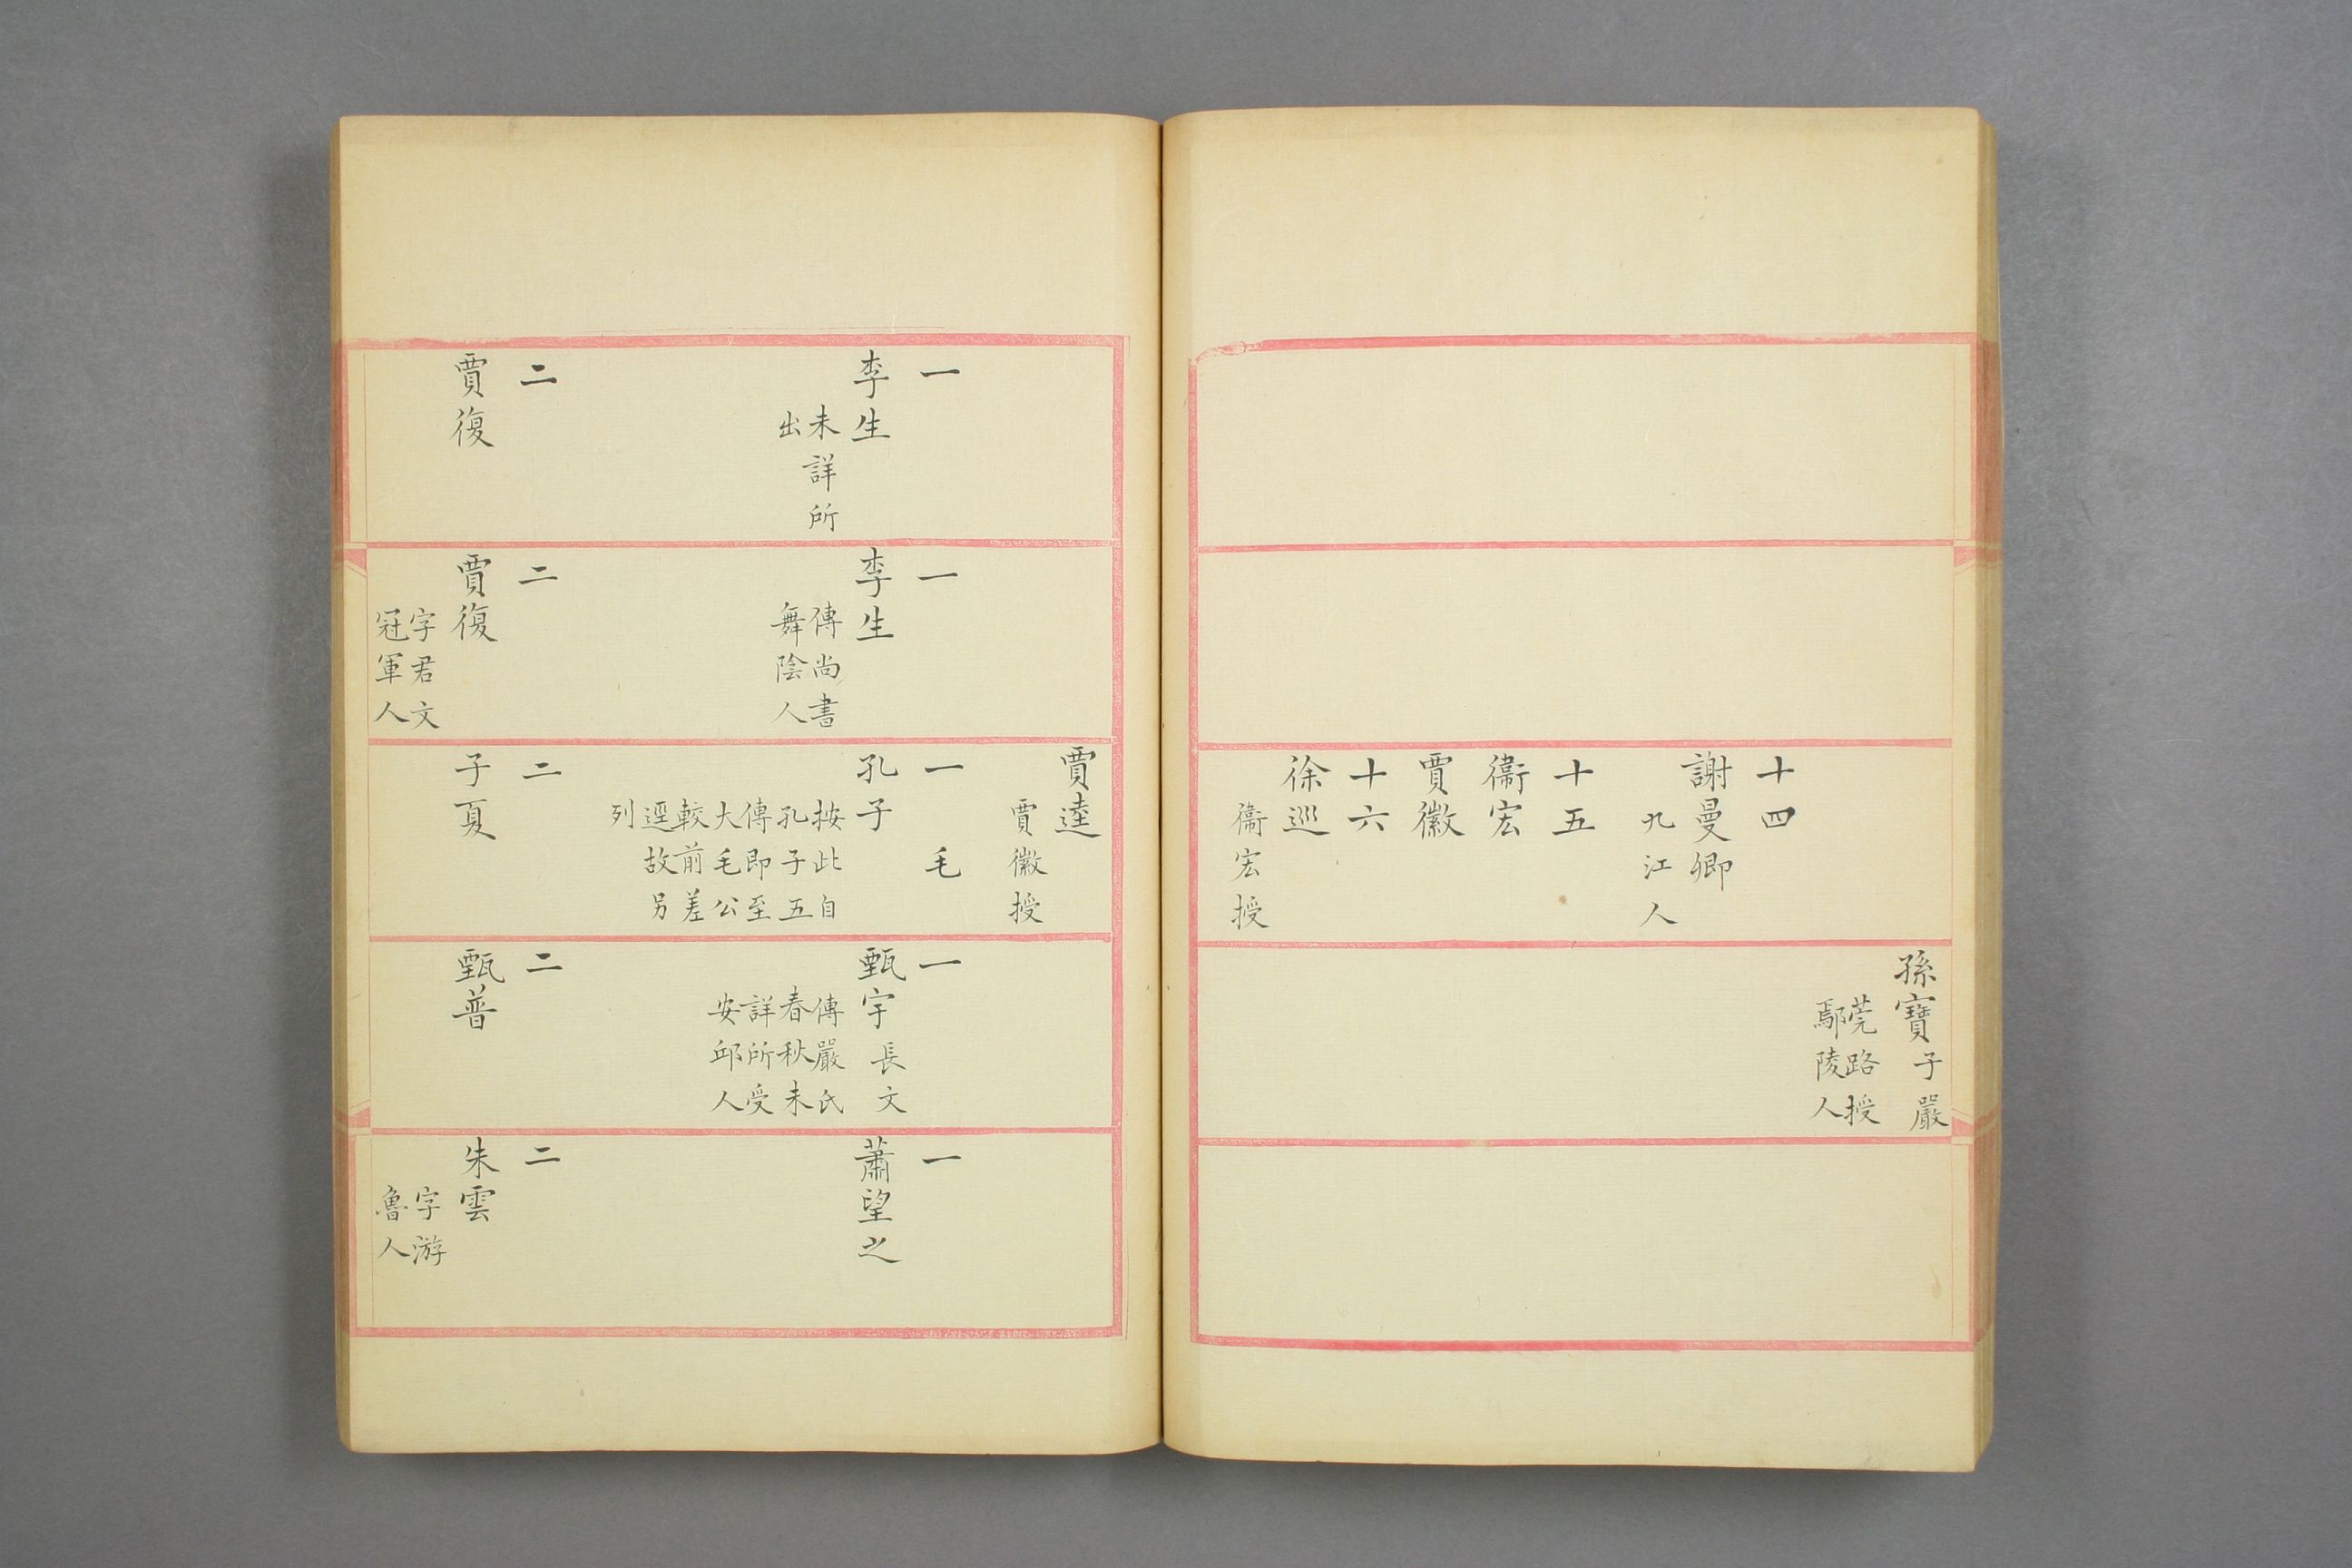 十四
謝曼卿
九江人
十五
衞宏
賈徽
十六
徐巡
衞宏授
孫寶子嚴
莞路授
鄢陵人
一
李生
未詳所
出
二
賈復
一
李生
傳尚書
舞陰人
二
賈復
字君文
冠軍人
賈逵
賈徽授
一毛
孔子
按此自
孔子五
傳即至
大毛公
較前差
逕故另
列
二
子夏
一
甄宇長文
傳嚴氏
春秋未
詳所受
安邱人
二
甄普
一
蕭望之
二
朱雲
字游
魯人